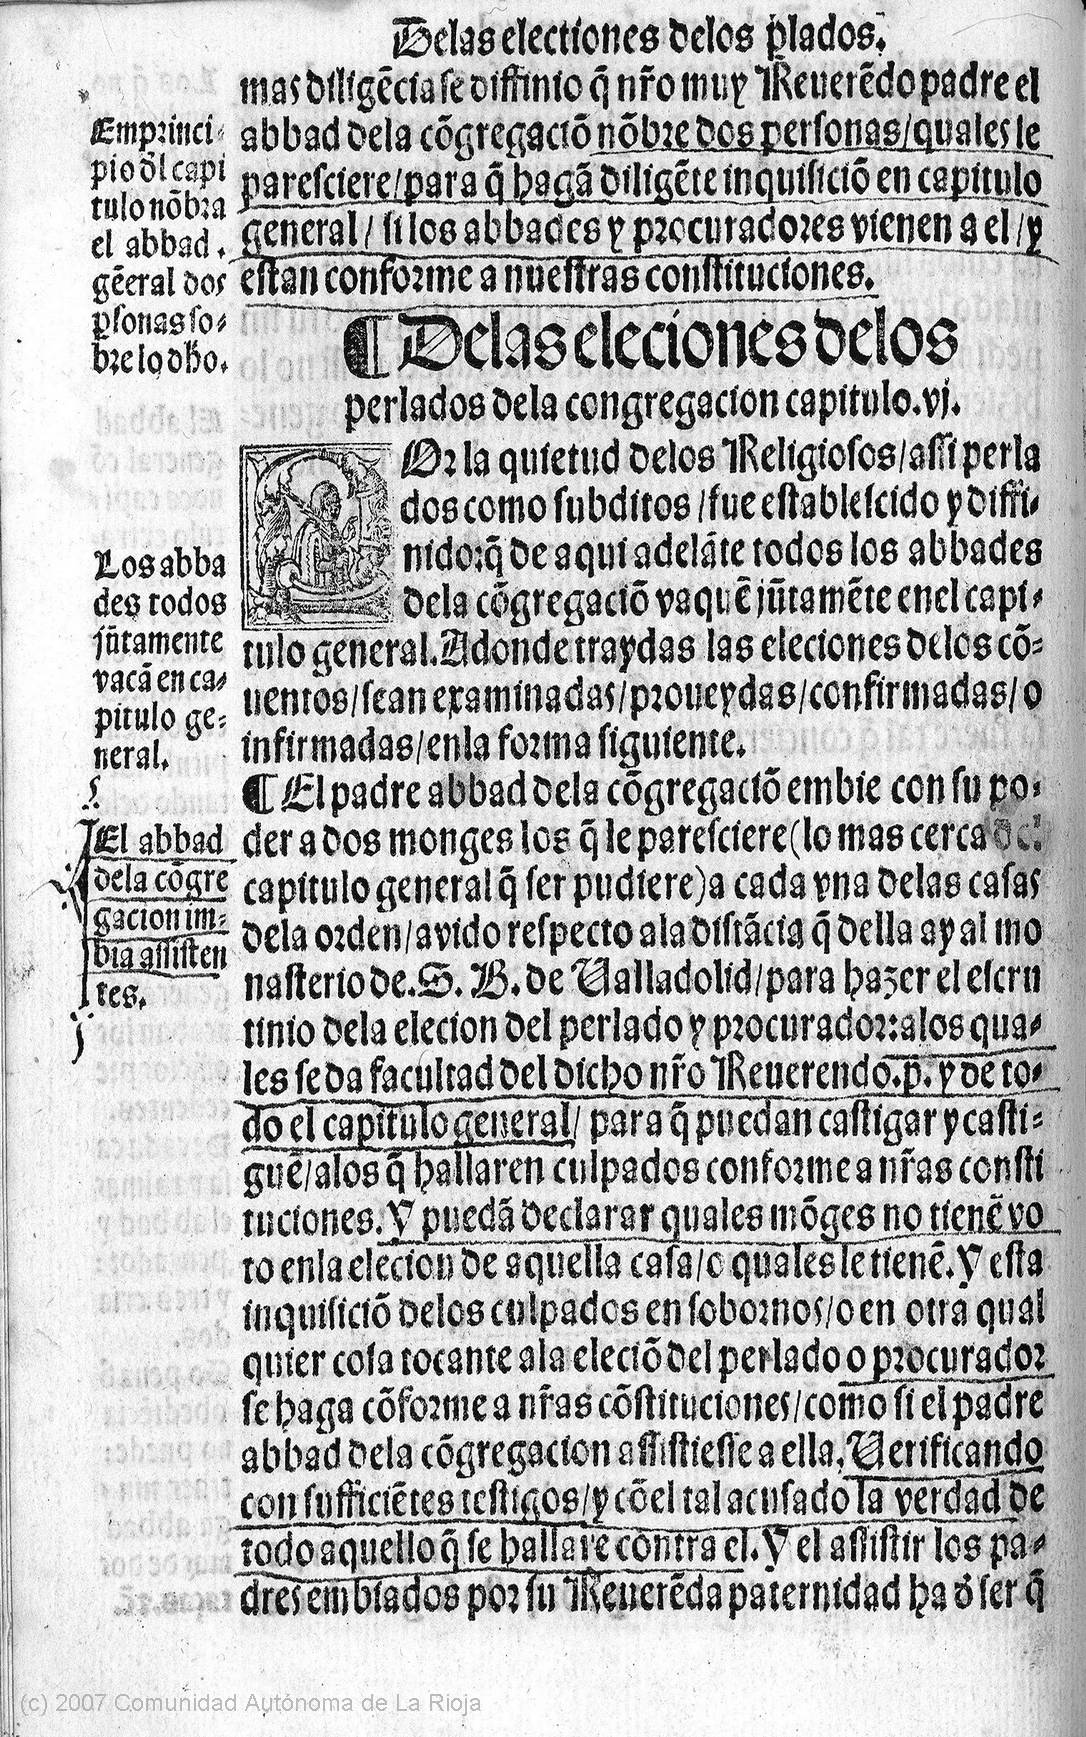 Delas electiones delos p̱lados.
mas diligẽcia se diffinio q̃ nr̃o muy Reuerẽdo padre el
abbad dela cõgregaciõ nõbre dos personas/quales le
paresciere/para q̃ hagã diligẽte inquisiciõ en capitulo
general/ si los abbades y procuradores vienen a el/y
estan conforme a nuestras constituciones.
Emprinci-
pio ðl capi
tulo nõbra
el abbad.
gẽeral dos
p̱sonas so-
bre lo dho.
¶ Delas eleciones delos
perlados dela congregacion capitulo.vj.
POr la quietud delos Religiosos/assi perla
dos como subditos /fue establescido y diffi-
nido:q̃ de aqui adelãte todos los abbades
dela cõgregaciõ vaquẽ jũtamẽte enel capi-
tulo general. Adonde traydas las eleciones delos cõ-
uentos/sean examinadas/proueydas/confirmadas/o
infirmadas/enla forma siguiente.
Los abba
des todos
jũtamente
vacã en ca-
pitulo ge-
neral.
¶ El padre abbad dela cõgregaciõ embie con su po-
der a dos monges los q̃ le paresciere(lo mas cerca del
capitulo general q̃ ser pudiere)a cada vna delas casas
dela orden/avido respecto ala distãcia q̃ della ay al mo
nasterio de.S. B. de Ualladolid/para hazer el escru
tinio dela elecion del perlado y procurador:alos qua-
les se da facultad del dicho nr̃o Reuerendo.p. y de to-
do el capitulo general/ para q̃ puedan castigar y casti-
guẽ/alos q̃ hallaren culpados conforme a nr̃as consti
tuciones. Y puedã declarar quales mõges no tienẽ vo
to enla elecion de aquella casa/o quales le tienẽ. Y esta
inquisiciõ delos culpados en sobornos/o en otra qual
quier cosa tocante ala eleciõ del perlado o procurador
se haga cõforme a nr̃as cõstituciones/como si el padre
abbad dela cõgregacion assistiesse a ella. Uerificando
con sufficiẽtes testigos/y cõ el tal acusado la verdad de
todo aquello q̃ se hallare contra el. Y el assistir los pa-
dres embiados por su Reuerẽda paternidad ha ð ser q̃
El abbad
dela cõgre
gacion im-
bia assisten
tes.
(c) 2007 Comunidad Autónoma de La Rioja